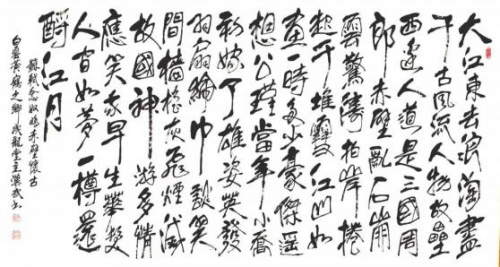 大江東去浪淘盡
千古風流人物故壘
西邊人道是三國周
郎赤壁亂石崩
雲驚濤拍岸捲
起千堆雪江山如
畫一時多少豪傑遥
想公瑾當年小喬
初嫁了雄姿英發
羽扇綸巾談笑
間檣櫓灰飛煙滅
故國神遊多情
應笑我早生華髮
人間如夢一樽還
酹江月
蘇軾念奴嬌赤壁懷古
白雲黃鶴之鄉成龍堂主